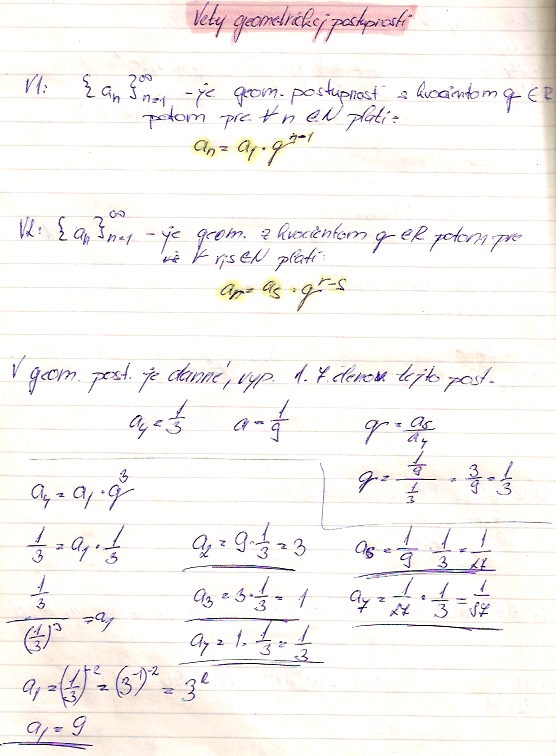 Vety geometrickej postupnosti
V1: {aₙ}ₙ₌₁^∞ - je geom. postupnosť s kvocientom q ∈ R
potom pre ∀ n ∈ N platí:
aₙ = a₁ · q^(n-1)
V2: {aₙ}ₙ₌₁^∞ - je geom. z kvocientom q ∈ R potom pre
∀ r,s ∈ N platí:
aᵣ = aₛ · q^(r-s)
V geom. post. je danné, vyp. 1. 7. členov tejto post.
a₄ = 1/3 a = 1/9 q = a₅/a₄
q = (1/9)/(1/3) = 3/9 = 1/3
a₄ = a₁ · q³
1/3 = a₁ · 1/3
(1/3)/(1/3)³ = a₁
a₁ = (1/3)⁻² = (3⁻¹)⁻² = 3²
a₁ = 9
a₂ = 9 · 1/3 = 3
a₃ = 3 · 1/3 = 1
a₄ = 1 · 1/3 = 1/3
a₆ = 1/9 · 1/3 = 1/27
a₇ = 1/27 · 1/3 = 1/